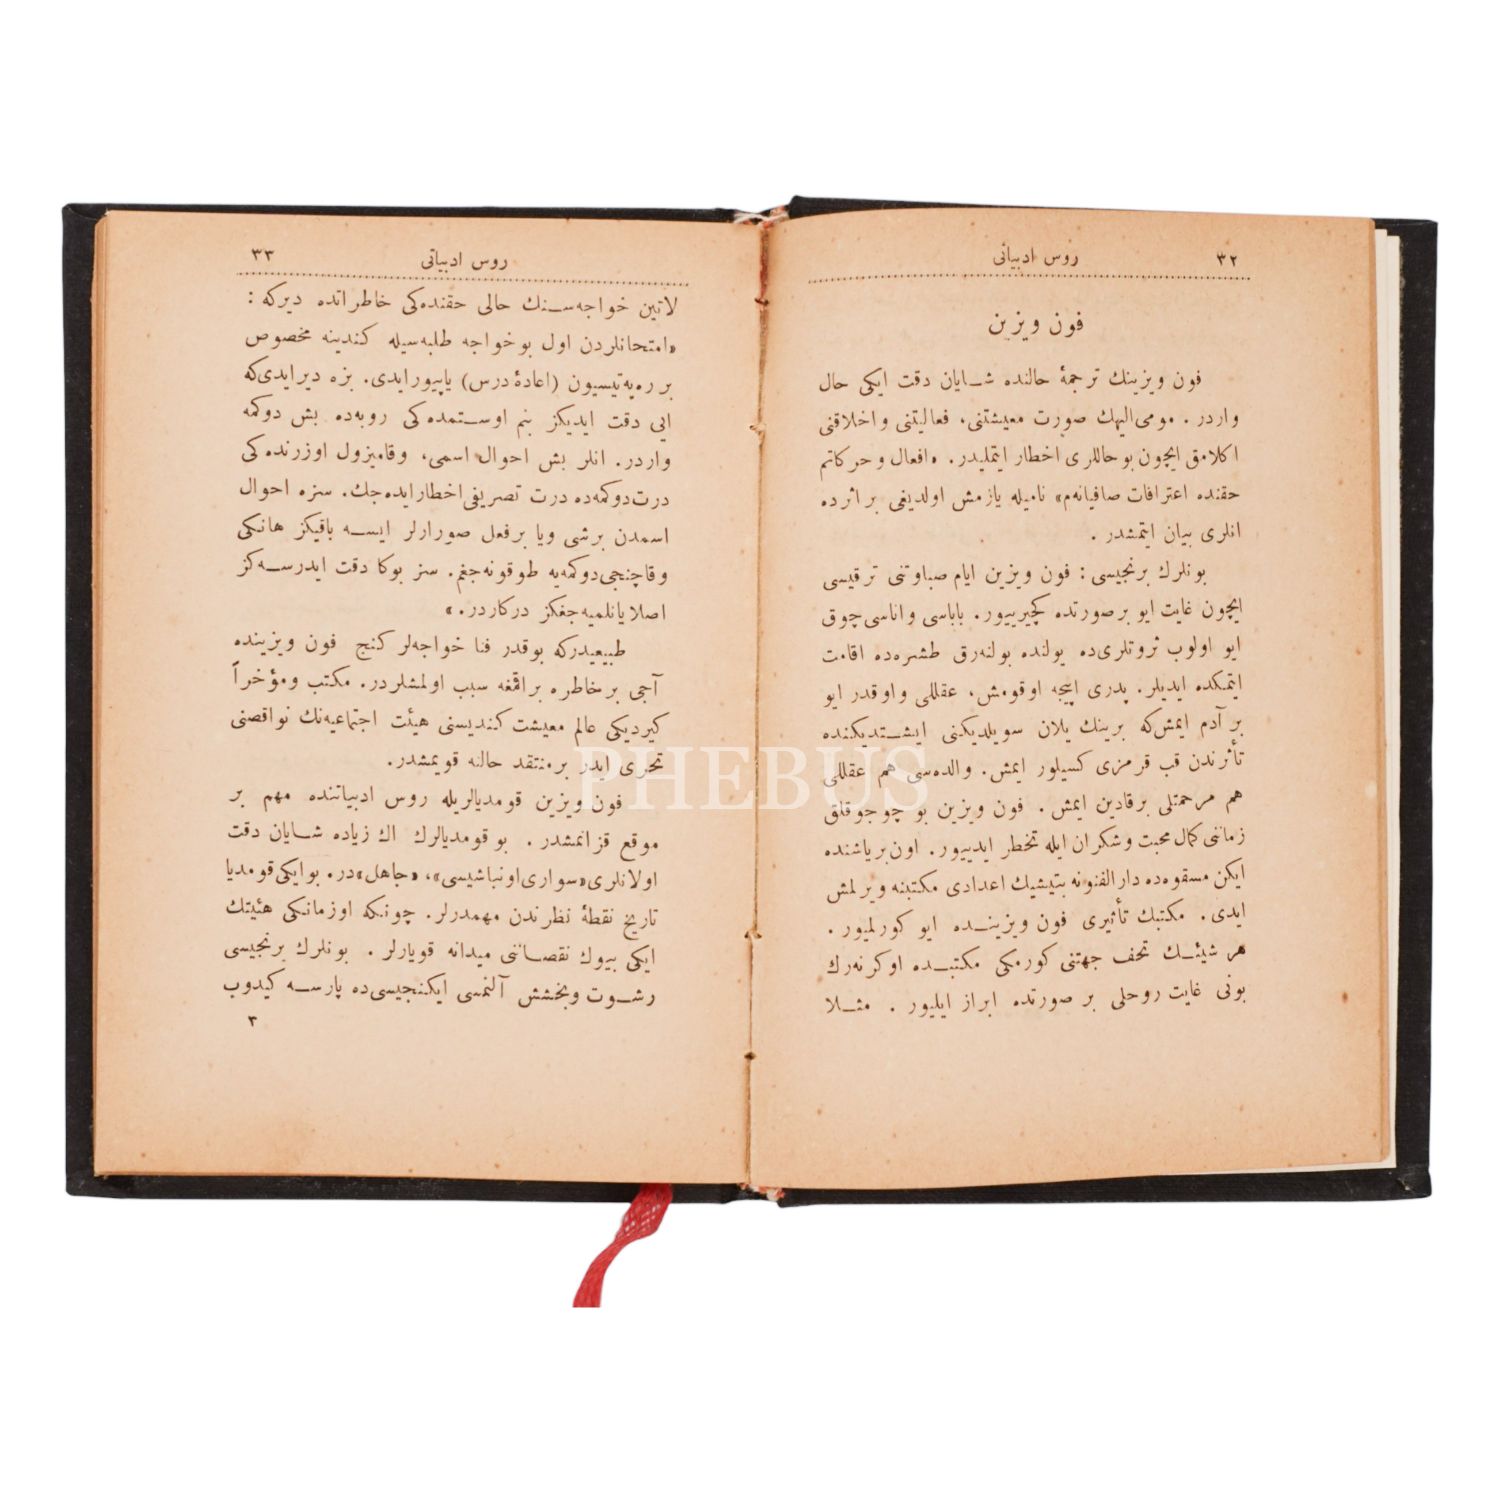 ٣٢
روس ادبیاتی
فون ویزین
فون ویزینك ترجمهٔ حالنده شـایان دقت ایكی حال
واردر . مومی‌الیهك صورت معیشتنی، فعالیتنی واخلاقنی
اكلامق ایچون بوحاللری اخطار ایتملیدر. «افعال وحركاتم
حقنده اعترافات صافیانه‌م» نامیله یازمش اولدیغی براثرده
انلری بیان ایتمشدر .
بونلرك برنجیسی : فون ویزین ایام صباوتنی ترقیسی
ایچون غایت ایو برصورتده كچیرییور. باباسی واناسی چوق
ایو اولوب ثروتلری‌ده یولنده بولنه‌رق طشره‌ده اقامت
ایتمكده ایدیلر. پدری اپیجه اوقومش، عقللی واوقدر ایو
برآدم ایمش‌كه برینك یلان سویلدیكنی ایشـتدیكنده
تأثرندن قب قرمزی كسیلور ایمش. والده‌سی هم عقللی
هم مرحمتلی برقادین ایمش . فون ویزین بو چوجوقلق
زماننی كمال محبت وشكران ایله تخطر ایدییور. اون‌بریاشنده
ایكن مسقوه‌ده دارالفنونه یتیشیك اعدادی مكتبنه ویرلمش
ایدی. مكتبك تأثیری فون ویزینـده ایو كورلمیور.
هر شیئـك تحف جهتنی كورمكی مكتبـده اوكرنه‌رك
بونی غایت روحلی بر صورتده ابراز ایلیور . مثـلا
٣٣
روس ادبیاتی
لاتین خواجه‌سـنك حالی حقنده‌كی خاطراتده دیركه :
«امتحانلردن اول بوخواجه طلبه‌سیله كندینه مخصوص
بر ره‌په‌تیسیون (اعادهٔ درس) یاپیورایدی. بزه دیرایدی‌كه
ایی دقت ایدیكز بنم اوستمده‌كی روبه‌ده بش دوكمه
واردر. انلر بش احوال اسمی، وقامیزول اوزرنده‌كی
درت‌دوكمه‌ده درت تصریفی‌اخطارایده‌جك. سزه احوال
اسمدن برشی ویا برفعل صورارلر ایسـه باقیكز هانكی
وقاچنجی‌دوكمه‌یه طوقونه‌جغم. سز بوكا دقت ایدرسـه‌كز
اصلایانلمیه‌جغكز دركاردر.»
طبیعیدركه بوقدر فنا خواجه‌لر كنج فون ویزینده
آجی برخاطره براقمغه سبب اولمشلردر. مكتب ومؤخراً
كیردیكی عالم معیشت كندیسنی هیئت اجتماعیه‌نك نواقصنی
تحری ایدر برمنتقد حالنه قویمشدر.
فون ویزین قومدیالریله روس ادبیاتنده مهم بر
موقع قزانمشدر. بوقومدیالرك اك زیاده شـایان دقت
اولانلری«سواری‌اونباشیسی»، «جاهل»در. بوایكی‌قومدیا
تاریخ نقطهٔ نظرندن مهمدرلر. چونكه اوزمانكی هیئتك
ایكی بیوك نقصـاننی میدانه قویارلر . بونلرك برنجیسی
رشـوت وبخشش آلنمسی ایكنجیسی‌ده پارسـه كیدوب
٣
PHEBUS